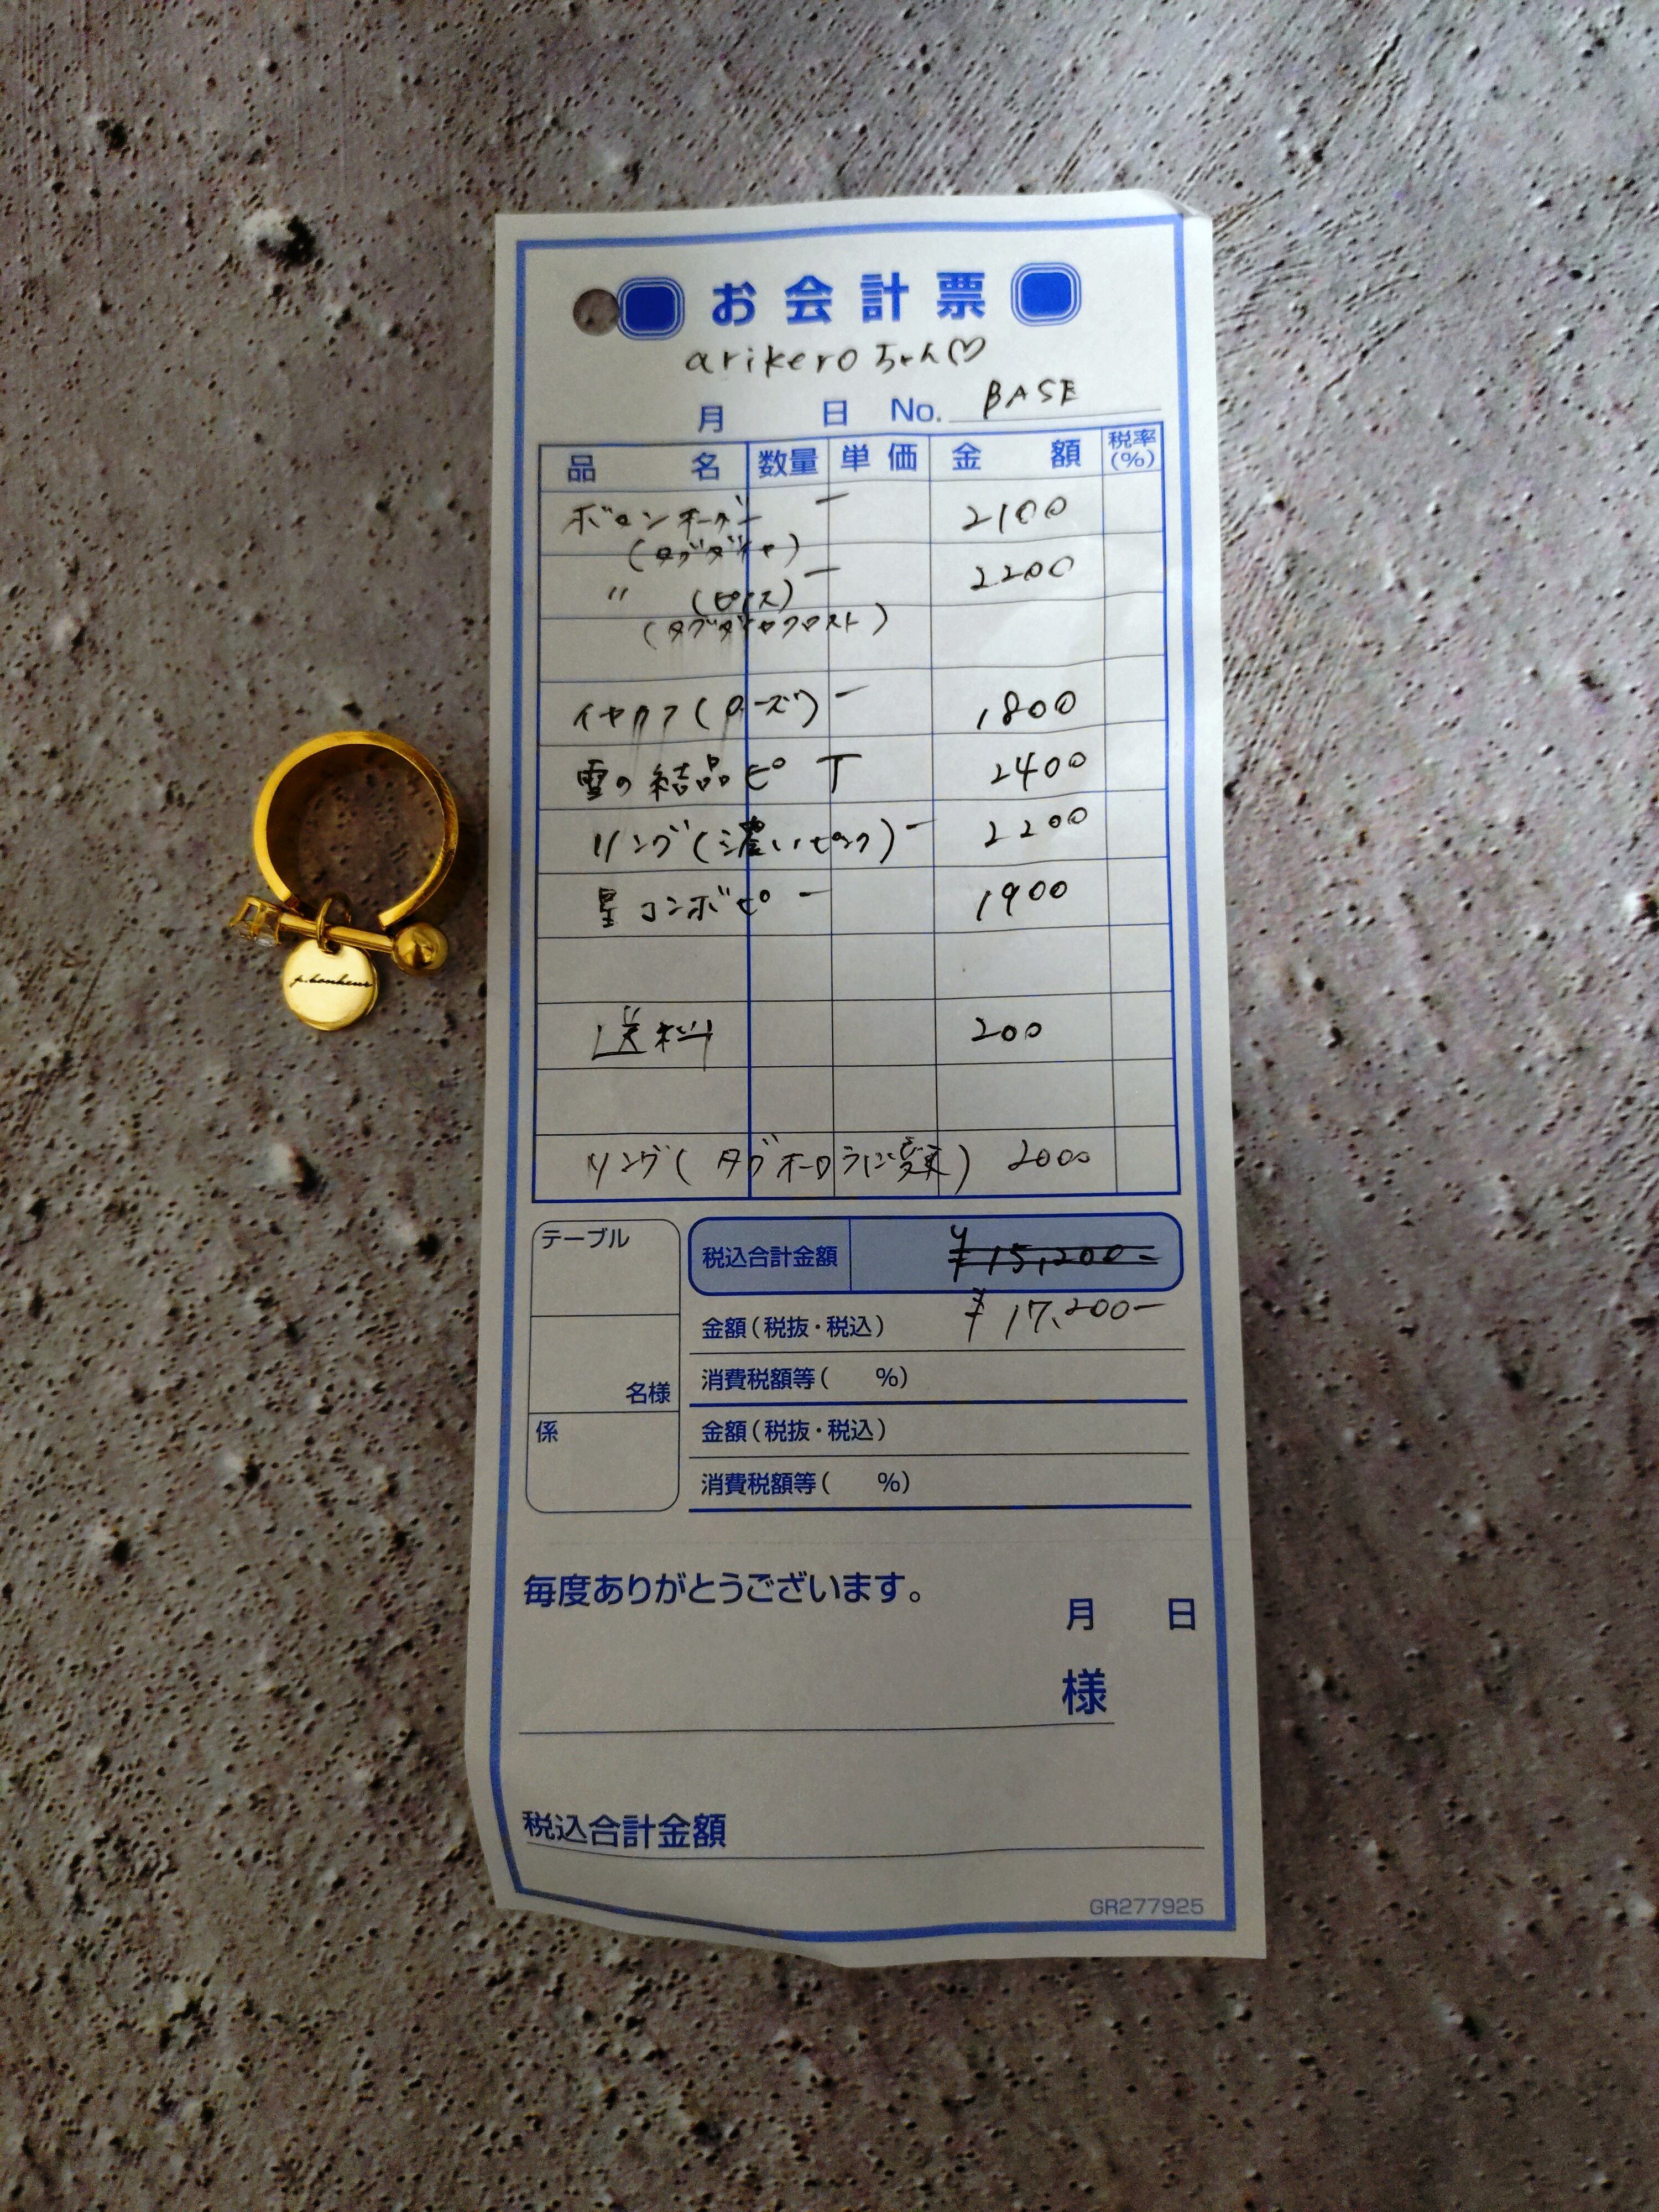 お会計票
arikeroちゃん♡
月 日 No. BASE
品名 数量 単価 金額 税率(%)
ボロンオーダー 一 2100
(タグダイヤ)
〃 (ピアス) 一 2200
(タグダイヤクロスト)
イヤカフ(ローズ) 一 1800
雪の結晶ピ T 2400
リング(濃いピンク) 一 2200
星コンボピ 一 1900
送料 200
リング(タグオーロラに変更) 2000
テーブル
税込合計金額 ¥15,200-
金額(税抜・税込) ¥17,200-
消費税額等( %)
名様
係
金額(税抜・税込)
消費税額等( %)
毎度ありがとうございます。
月 日
様
税込合計金額
GR277925
p.bonheur